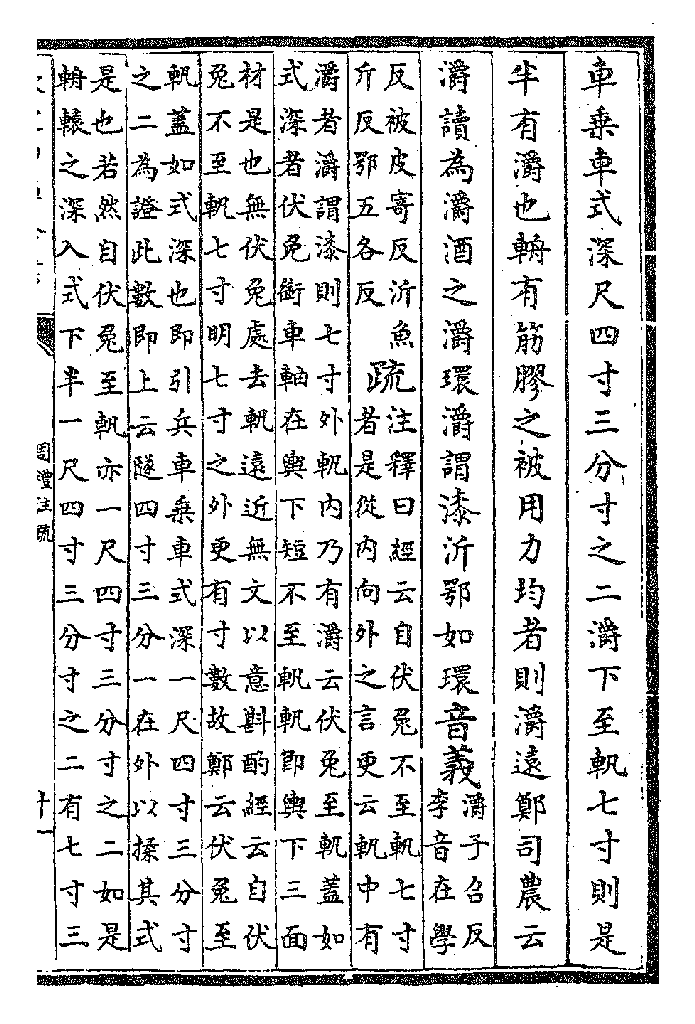 車乘車式深尺四寸三分寸之二灂下至軓七寸則是
半有灂也輈有筋膠之被用力均者則灂遠鄭司農云
灂讀為灂酒之灂環灂謂漆沂鄂如環音義灂子召反
李音在學
反被皮寄反沂魚
斤反鄂五各反
疏
注釋曰經云自伏兔不至軓七寸
者是從內向外之言更云軓中有
灂者灂謂漆則七寸外軓內乃有灂云伏兔至軓蓋如
式深者伏兔銜車軸在輿下短不至軓軓即輿下三面
材是也無伏兔處去軓遠近無文以意斟酌經云自伏
兔不至軓七寸明七寸之外更有寸數故鄭云伏兔至
軓蓋如式深也即引兵車乘車式深一尺四寸三分寸
之二為證此數即上云隧四寸三分一在外以揉其式
是也若然自伏兔至軓亦一尺四寸三分寸之二如是
輈轅之深入式下半一尺四寸三分寸之二有七寸三
周禮注疏
十一